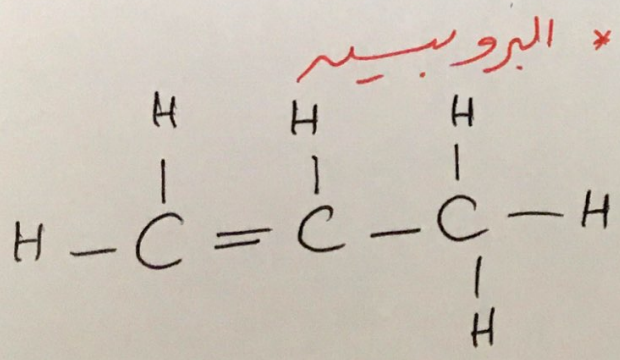 * البروبين
H H H
H – C = C – C – H
H